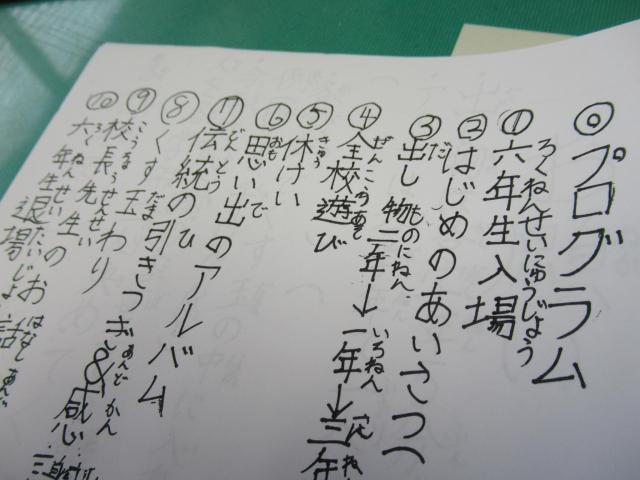 ◎プログラム
ろくねんせいにゅうじょう
①六年生入場
②はじめのあいさつへ
だ ものにねん いちねん
③出し物二年→一年→三年
ぜんこうあそ
④全校遊び
きゅう
⑤休けい
おも で
⑥思い出のアルバム
でんとう
⑦伝統のひ引きつぎ&感
あんど かん
だま
⑧くす玉わり
こうちょうせんせい はなし
⑨校長先生のお話
ろくねんせいたいじょう
⑩六年生退場